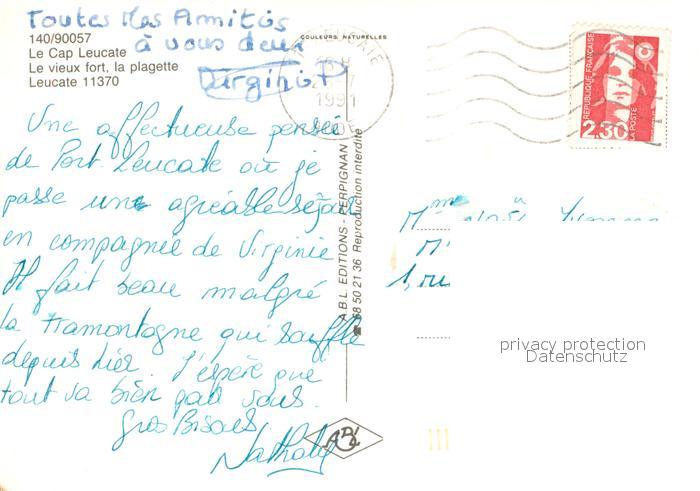 Toutes Mes Amitiés
à vous deux
Virginie
140/90057
Le Cap Leucate
Le vieux fort, la plagette
Leucate 11370
COULEURS NATURELLES
1991
RÉPUBLIQUE FRANÇAISE
2,30
LA POSTE
Une affectueuse pensée
de Port Leucate où je
passe une agréable séjour
en compagnie de Virginie
Il fait beau malgré
la Tramontagne qui souffle
depuis hier. J'espère que
tout va bien pour vous.
Gros Bisous
Nathaly
A.B.L. EDITIONS - PERPIGNAN
68 50 21 36 Reproduction interdite
ABL
Mme
1, ru
privacy protection
Datenschutz